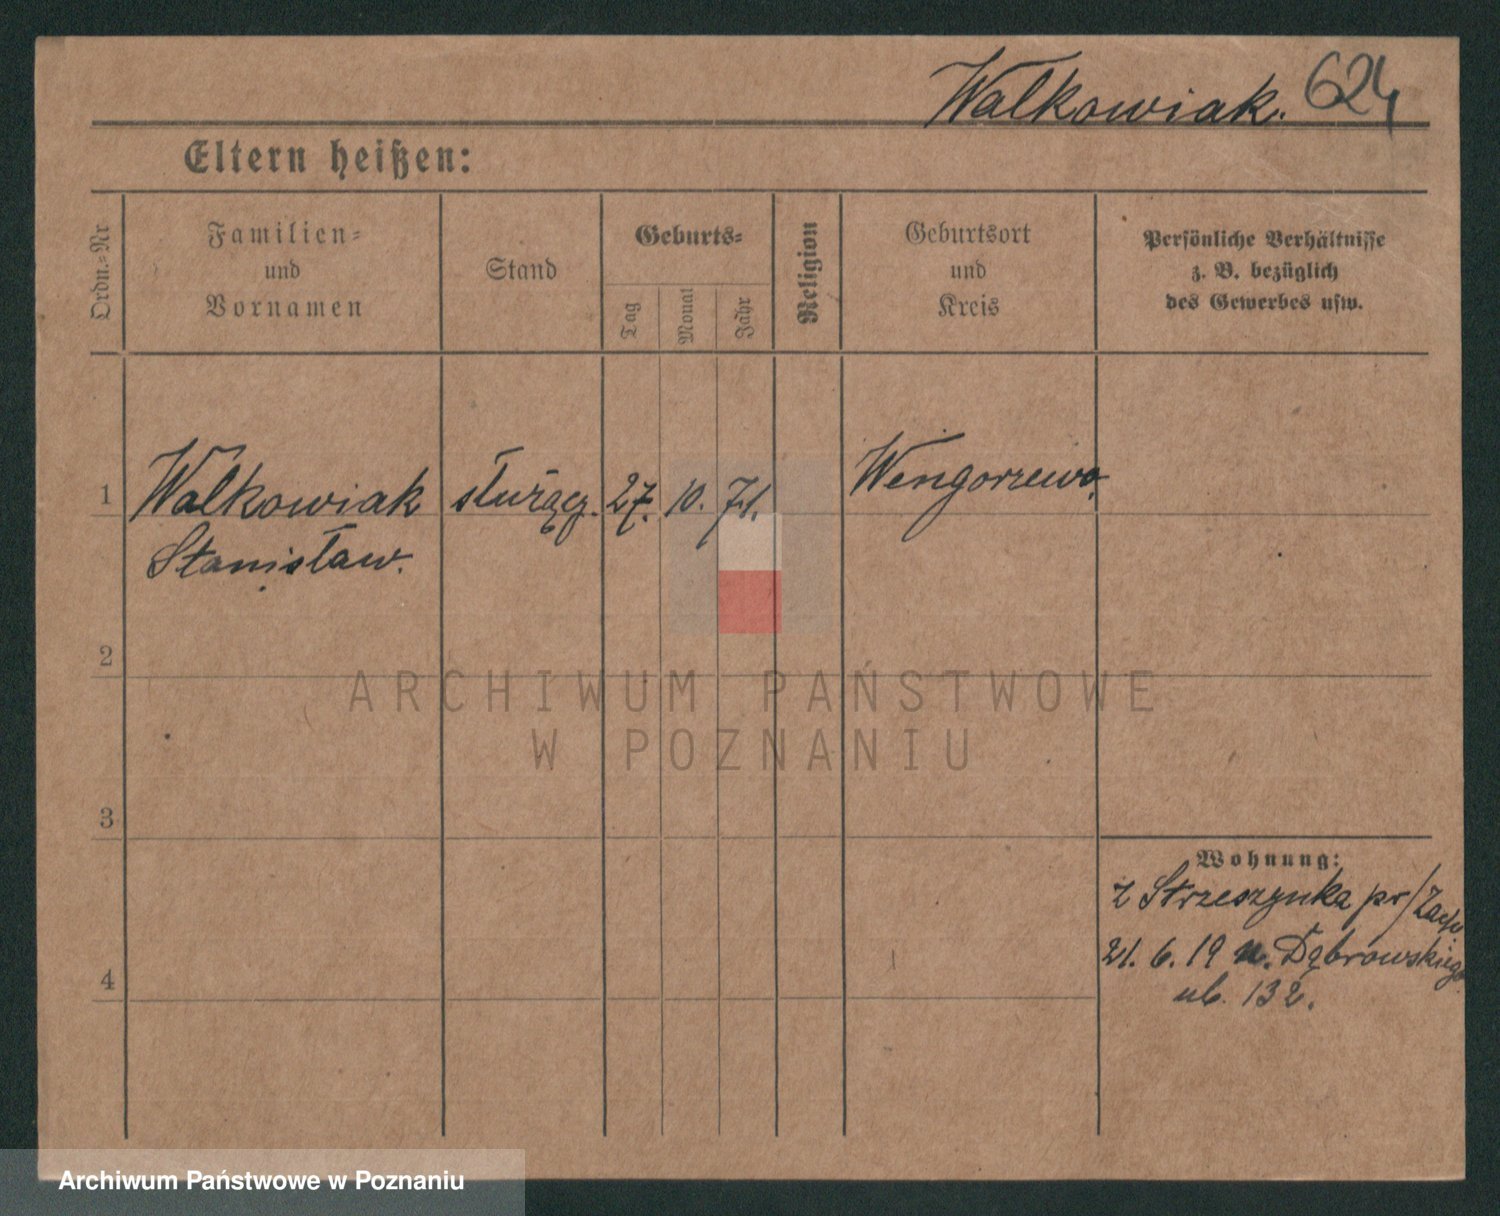 Walkowiak. 624
Eltern heißen:
Ordn.=Nr
Familien=
und
Vornamen
Stand
Geburts=
Tag
Monat
Jahr
Religion
Geburtsort
und
Kreis
Persönliche Verhältnisse
z. B. bezüglich
des Gewerbes usw.
1 Walkowiak służący. 27. 10. 71. Wengorzewo.
Stanisław.
2
ARCHIWUM PAŃSTWOWE
W POZNANIU
3
Wohnung:
z Strzeszynka pr/
21. 6. 19 u. Dąbrowskiego
4
ub. 132.
Archiwum Państwowe w Poznaniu